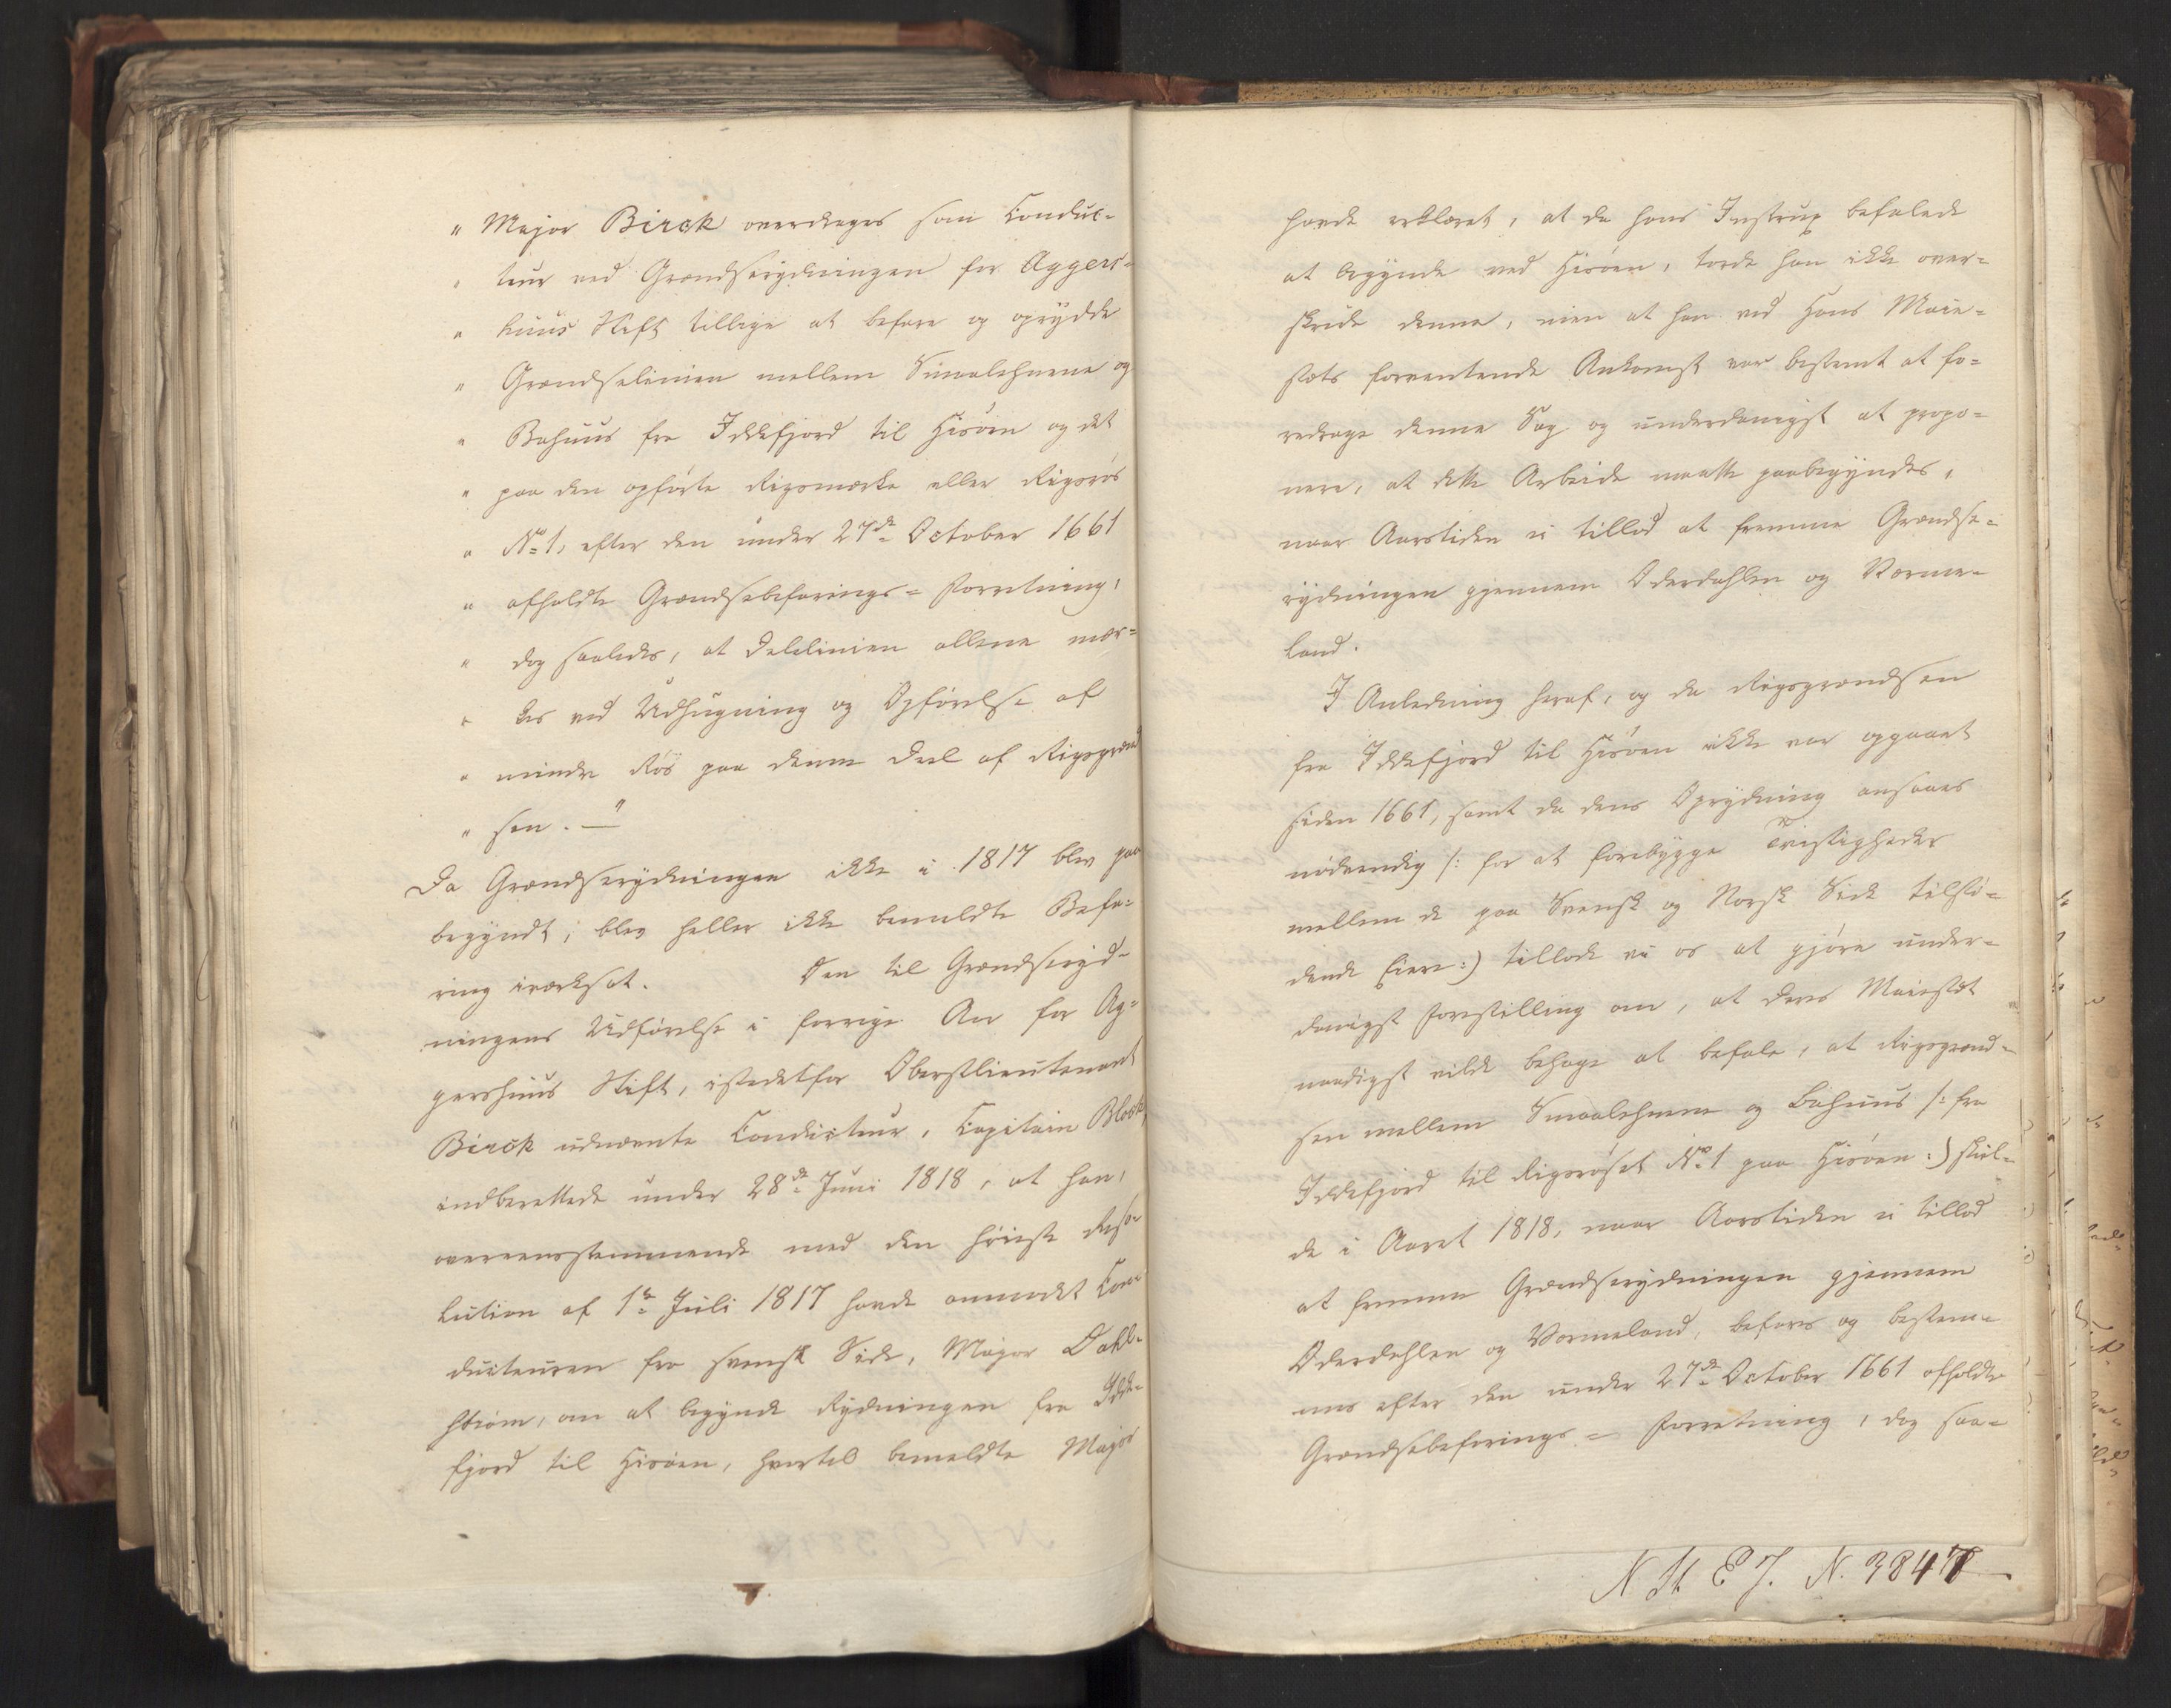 " Major Birck overdrages som Conduc-
" teur ved Grændserydningen for Aggers-
" huus Stift tillige at befare og oprydde
" Grændselinien mellem Smaalehnene og
" Bahuus fra Iddefjord til Hisöen og det
" paa den opförte Rigsmærke eller Rigsrös
" No 1, efter den under 27de October 1661
" afholdte Grændsebefarings-Forretning,
" dog saaledes, at Delelinien allene mær-
" kes ved Udhugning og Opförelse af
" mindre Rös paa denne Deel af Rigsgrænd
" sen. —"
Da Grændserydningen ikke i 1817 blev paa
begyndt, blev heller ikke bemeldte Befa-
ring iværksat. Den til Grændseryd-
ningens Udförelse i forrige Aar for Ag-
gershuus Stift, istedetfor Oberstlieutenant
Birck udnævnte Conducteur, Capitain Block,
indberettede under 28de Juni 1818, at han,
overeensstemmende med den höieste Reso-
lution af 1te Juli 1817 havde anmodet Con-
ducteuren fra svensk Side, Major Dahl-
ström, om at begynde Rydningen fra Idde-
fjord til Hisöen, hvortil bemeldte Major
havde erklæret, at da hans Instrux befalede
at begynde ved Hisöen, torde han ikke over-
skride denne, men at han ved Hans Maje-
stæts forventende Ankomst var bestemt at fo-
redrage denne Sag og underdanigst at propo-
nere, at dette Arbeide maatte paabegyndes,
naar Aarstiden ei tillod at fremme Grændse-
rydningen gjennem Oderdahlen og Værme-
land.
I Anledning heraf, og da Rigsgrændsen
fra Iddefjord til Hisöen ikke var opgaaet
siden 1661, samt da dens Oprydning ansaaes
nödvendig /: for at forebygge Tvistigheder
mellem de paa Svensk og Norsk Side tilstö-
dende Eiere :) tillode vi os at gjöre under-
danigst Forestilling om, at Deres Majestæt
naadigst vilde behage at befale, at Rigsgrænd-
sen mellem Smaalehnene og Bahuus /: fra
Iddefjord til Rigsröset No 1 paa Hisöen :) skul-
de i Aaret 1818, naar Aarstiden ei tillod
at fremme Grændserydningen gjennem
Oderdahlen og Vermeland, befares og bestem-
mes efter den under 27de October 1661 afholdte
Grændsebefarings-Forretning, dog saa-
N St E J. N. 3847